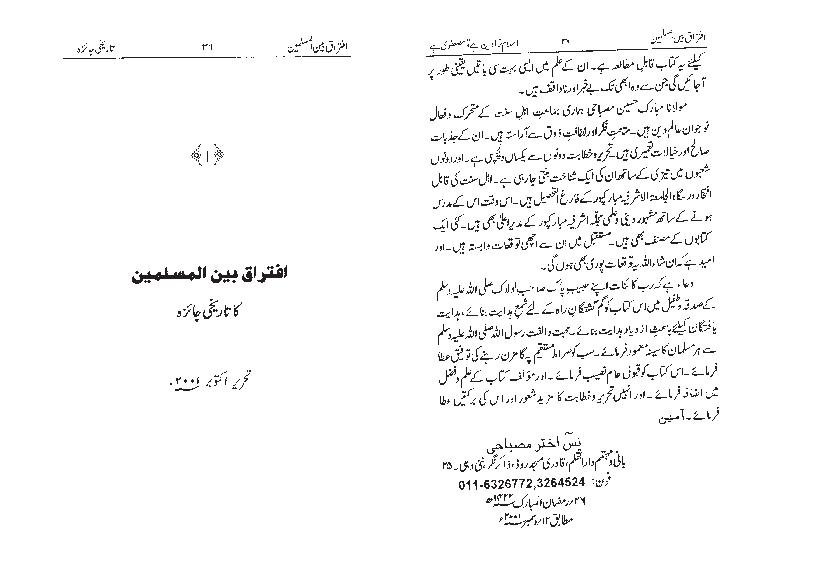 افتراق بین المسلمین ۳۰ اسلام زادین ہے تو مصطفوی ہے
کیلئے یہ کتاب قابل مطالعہ ہے۔ ان کے علم میں ایسی بہت سی باتیں یقینی طور پر
آجائیں گی جن سے وہ ابھی تک بے خبر اور ناواقف ہیں۔
مولانا مبارک حسین مصباحی ہماری جماعت اہل سنت کے متحرک و فعال
نوجوان عالم دین ہیں۔ متانت فکر اور لطافت ذوق سے آراستہ ہیں۔ ان کے جذبات
صالح اور خیالات تعمیری ہیں تحریر و خطابت دونوں سے یکساں دلچسپی ہے۔ اور دونوں
شعبوں میں تیزی کے ساتھ ان کی ایک شناخت بنتی جارہی ہے۔ اہل سنت کی قابل
افتخار درسگاہ الجامعۃ الاشرفیہ مبارکپور کے فارغ التحصیل ہیں۔ اس وقت اس کے مدرس
ہونے کے ساتھ مشہور دینی و علمی مجلہ اشرفیہ مبارکپور کے مدیر اعلیٰ بھی ہیں۔ کئی ایک
کتابوں کے مصنف بھی ہیں۔ مستقبل میں ان سے اچھی توقعات وابستہ ہیں۔ اور
امید ہے کہ ان شاء اللہ یہ توقعات پوری بھی ہوں گی۔
دعاء ہے کہ رب کائنات اپنے حبیب پاک صاحب لولاک صلی اللہ علیہ وسلم
کے صدقہ و طفیل میں اس کتاب کو گم گشتگان راہ کے لئے شمع ہدایت بنائے، ہدایت
یافتگان کیلئے باعث ازدیاد ہدایت بنائے۔ محبت و الفت رسول اللہ صلی اللہ علیہ وسلم
سے ہر مسلمان کا سینہ معمور فرمائے۔ سب کو صراط مستقیم پہ گامزن رہنے کی توفیق عطا
فرمائے۔ اس کتاب کو قبولی عام نصیب فرمائے۔ اور مؤلف کتاب کے علم و فضل
میں اضافہ فرمائے۔ اور انہیں تحریر و خطابت کا مزید شعور اور اس کی برکتیں عطا
فرمائے۔ آمین
یٰسٓ اختر مصباحی
بانی و مہتمم دارالقلم، قادری مسجد روڈ، ذاکر نگر نئی دہلی۔ ۲۵
فون: 011-6326772,3264524
۲۶ رمضان المبارک ۱۴۲۲ھ
مطابق ۱۲ دسمبر ۲۰۰۱ء
افتراق بین المسلمین ۳۱ تاریخی جائزہ
﴿۱﴾
افتراق بین المسلمین
کا تاریخی جائزہ
تحریر اکتوبر ۲۰۰۱ء